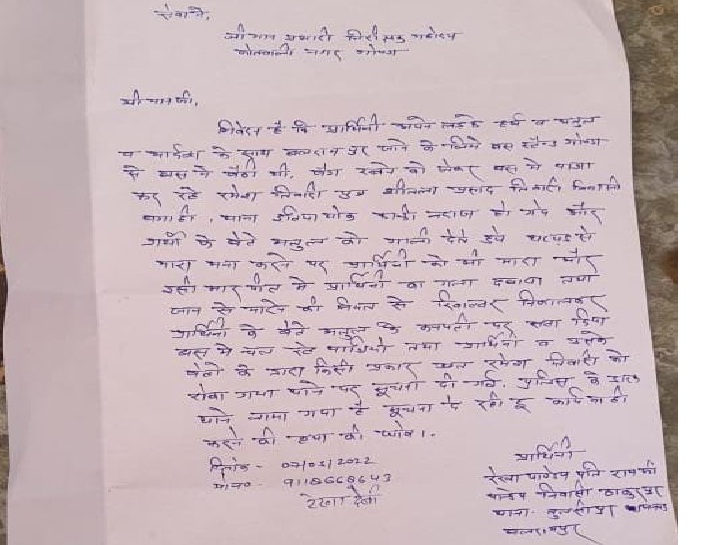 सेवा में,
श्रीमान प्रभारी निरीक्षक महोदय
कोतवाली नगर गोण्डा
श्रीमान जी,
निवेदन है कि प्रार्थिनी अपने लड़के हर्ष व अतुल
व आदर्श के साथ बलरामपुर जाने के लिये बस स्टैन्ड गोण्डा
से बस में बैठी थी, बैग रखने को लेकर बस में यात्रा
कर रहे रमेश तिवारी पुत्र शीतला प्रसाद तिवारी निवासी
थाना इटियाथोक काफी नाराज हो गये और
प्रार्थी के बेटे अतुल को गाली देते हुये थप्पड़ से
मारा मना करने पर प्रार्थिनी को भी मारा और
इसी मार पीट में प्रार्थिनी का गला दबाया तथा
जान से मारने की नियत से रिवाल्वर निकालकर
प्रार्थिनी के बेटे अतुल के कनपटी पर सटा दिया
बस में चल रहे यात्रियों तथा प्रार्थिनी व उसके
बेटों के द्वारा किसी प्रकार रमेश तिवारी को
रोका गया थाने पर सूचना दी गई, पुलिस के द्वारा
थाने लाया गया है सूचना दे रही हूं कार्यवाही
करने की कृपा की जाये।
प्रार्थिनी
दिनांक - 07/03/2022
मो०न० - 9118668643
रेखा देवी
रेखा पाण्डेय पत्नि राम जी
पाण्डेय निवासी ठाकुरपुर
थाना - तुलसीपुर जनपद
बलरामपुर